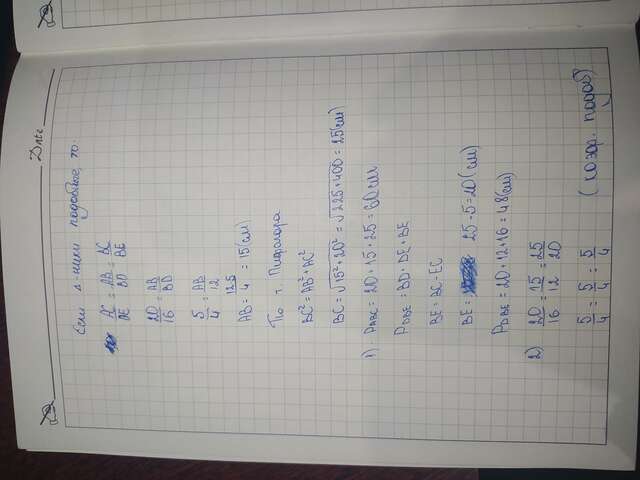 Date
Если Δ-ники подобные, то.
AC/DE = AB/BD = BC/BE
20/16 = AB/BD
5/4 = AB/12
AB = 12·5/4 = 15 (см)
По т. Пифагора
BC² = AB² + AC²
BC = √15² + 20² = √225 + 400 = 25 (см)
1) P ABC = 20 + 15 + 25 = 60 см
P DBE = BD + DE + BE
BE = BC - EC
BE = 25 - 5 = 20 (см)
P DBE = 20 + 12 + 16 = 48 (см)
2) 20/16 = 15/12 = 25/20
5/4 = 5/4 = 5/4